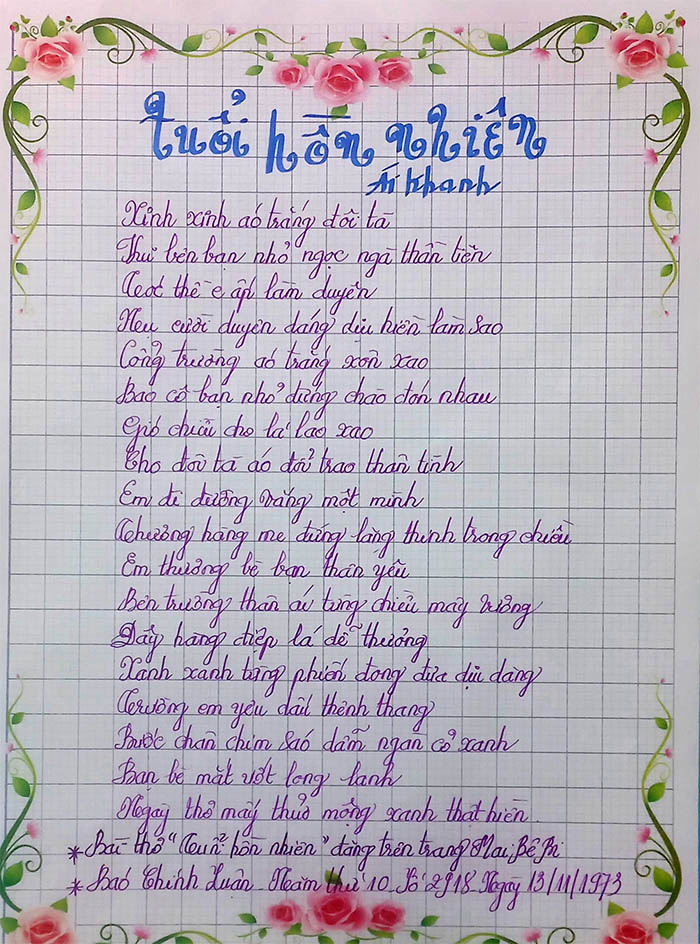 Tuổi hồn nhiên
Ái Khanh
Xinh xinh áo trắng đôi tà
Thư bên bạn nhỏ ngọc ngà thần tiên
Có thế e ấp làm duyên
Nụ cười duyên dáng dịu hiền làm sao
Cổng trường áo trắng xôn xao
Bao cô bạn nhỏ đứng chào đón nhau
Gió chiều cho lá lao xao
Cho đôi tà áo đổi trao thân tình
Em đi đường vắng một mình
Thương hàng me đứng lặng thinh trong chiều
Em thương bè bạn thân yêu
Bên trường thân ái từng chiều mây vương
Dãy hàng điệp lá dễ thương
Xanh xanh từng phiến đong đưa dịu dàng
Trường em yêu dấu thênh thang
Bước chân chim sáo dẫm ngàn cỏ xanh
Bạn bè mắt ướt long lanh
Ngây thơ mấy thuở mộng xanh thật hiền.
* Bài thơ "Tuổi hồn nhiên" đăng trên trang Mai Bê Bi
* Báo Chính Luận Năm thứ 10 Số 2918 Ngày 13/11/1973